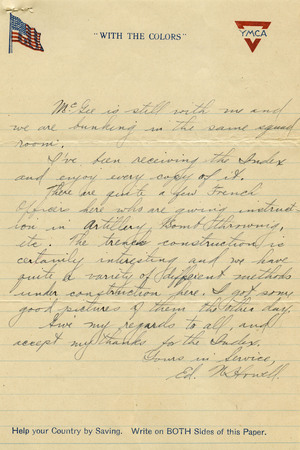 "WITH THE COLORS"
YMCA
McGee is still with me and
we are bunking in the same squad
room.
I've been receiving the Index
and enjoy every copy of it.
There are quite a few French
Officers here who are giving instruct-
ion in Artillery, Bomb throwing,
etc. The trench construction is
certainly interesting and we have
quite a variety of different methods
under construction here. I got some
good pictures of them the other day.
Give my regards to all, and
accept my thanks for the Index.
Yours in Service,
Ed. Howell.
Help your Country by Saving. Write on BOTH Sides of this Paper.